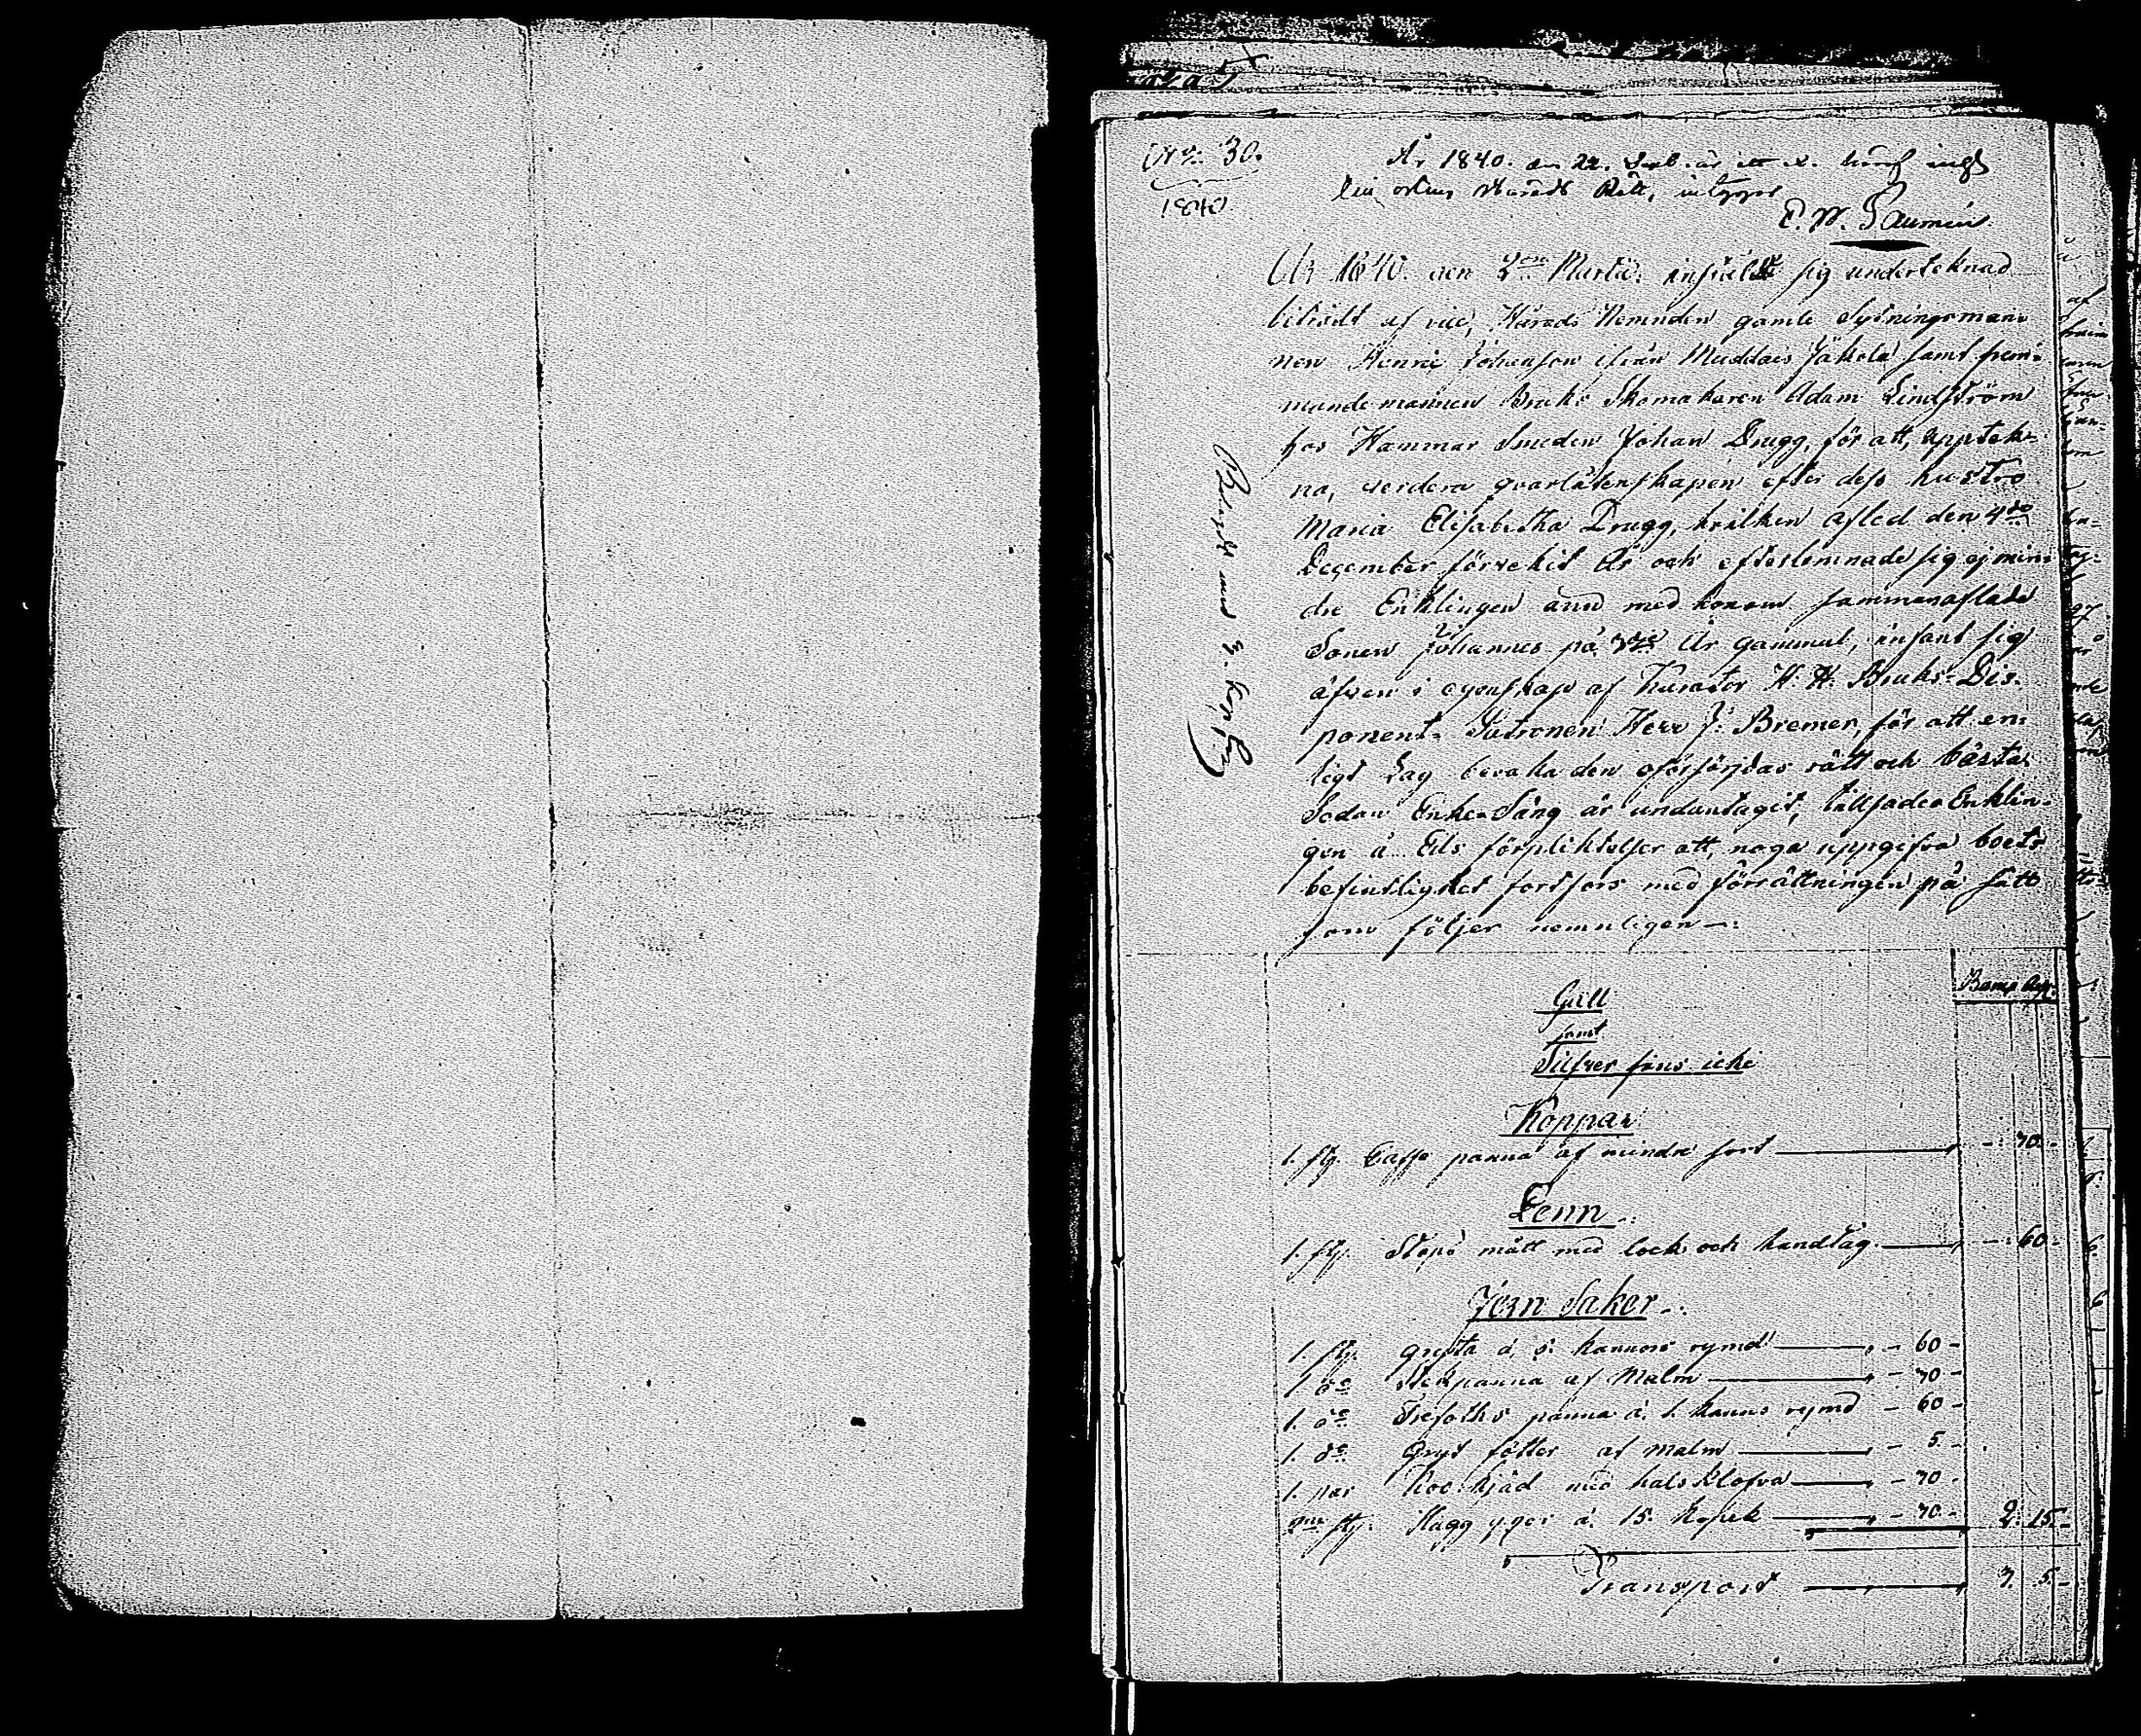 No 30.
1840
År 1840. den 22. Sept. är
Häradt Rätt, intygas
År 1840 den 2dra Martii infälte sig underteknad
biträdt af vice Härads Nemnden gamle Sytningsman-
nen Henric Johansson ifrån Muddais Jäkola samt frem-
mande mannen Bruks Skomakaren Adam Lindström
hos Hammar Smeden Johan Drugg, för att, uppteck-
na, verdera qvarlåtenskapen efter dess hustro
Maria Elisabetha Drugg, hvilken afled den 4de
December förvekit År och efterlemnade sig ej min-
dre Enklingen änn med honom sammanaflade
Sonen Johannes på År gammal, infant sig
äfven i egenskap af Kurator H. H. Bruks-Dis-
ponent Patronen Herr J: Bremer, för att en-
ligt Lag bevaka den oförsörjdas rätt och bästa
Sedan Enke-Säng är undantagit, tillsades Enklin-
gen å Eds förpliktelser att, noga uppgifva boets
befintlighet fortfors med förrättningen på sätt
som följer nemnligen—:
Banco Ass:
Gull
samt
Silfver fins icke
Koppar
1. st. Caffe panna af mindre sort — - 70 -
Tenn
1. st. Stops mått med lock och handtag — - 60 -
Jern Saker
1. st. Gryta á 5. kannors rymd — - 60 -
1 do Stekpanna af Malm — - 70 -
1. do Trefoths panna á 1. kanns rymd - 60 -
1. do Gryt fötter af malm — - 5. -
1. par med halsklofva — - 70 -
st. Hugg yxor á 15. kopek — - 70 - 2. 15. -
Transport — 3. 5. -